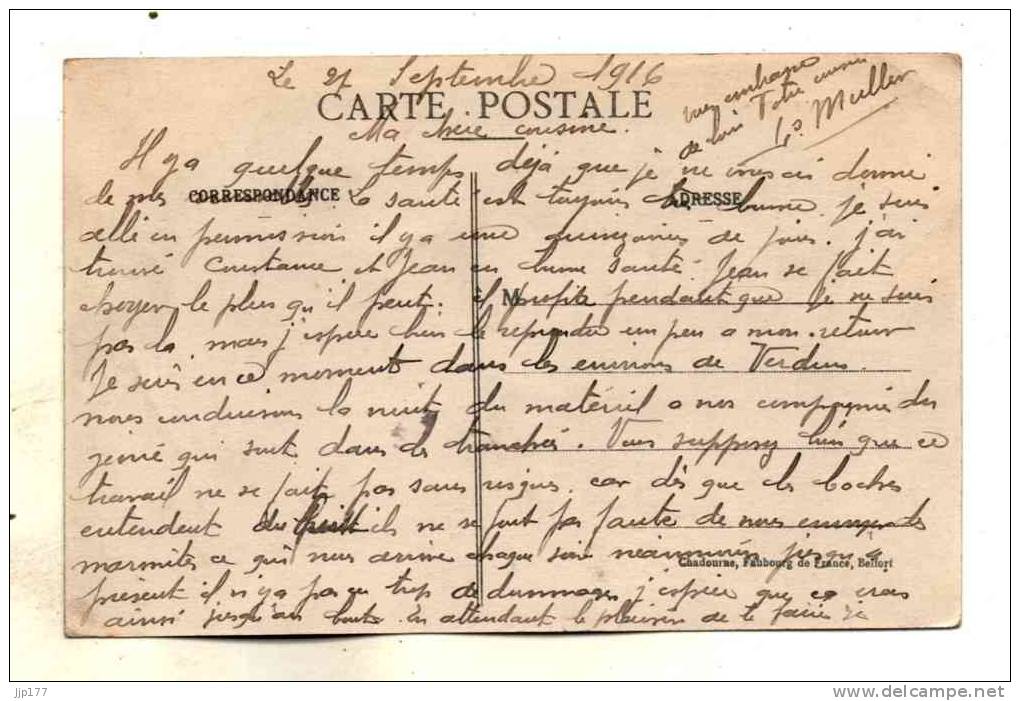 Le 27 Septembre 1916
CARTE POSTALE
Ma chère cousine.
Il y a quelque temps déjà que je ne vous ai donné
de mes CORRESPONDANCE La santé est toujours ADRESSE bonne. je suis
allé en permission il y a une quinzaine de jours. j'ai
trouvé Constance et Jean en bonne santé. Jean se fait
choyer le plus qu'il peut. il M profite pendant que je ne suis
pas là, mais j'espère bien le reprendre un peu a mon retour
Je suis en ce moment dans les environs de Verdun.
nous conduisons la nuit du matériel a nos compagnies du
génie qui sont dans les tranchées. Vous supposez bien que ce
travail ne se fait pas sans risques, car dès que les boches
entendent du bruit ils ne se font pas faute de nous
marmites ce qui nous arrive chaque soir néanmoins jusqu'à
Chadourne, Faubourg de France, Belfort
présent il n'y a pas eu trop de dommages j'espère que ce
ainsi jusqu'au bout. En attendant le plaisir de te je
vous embrasse
de loin Votre cousin
Muller
jjp177
www.delcampe.net